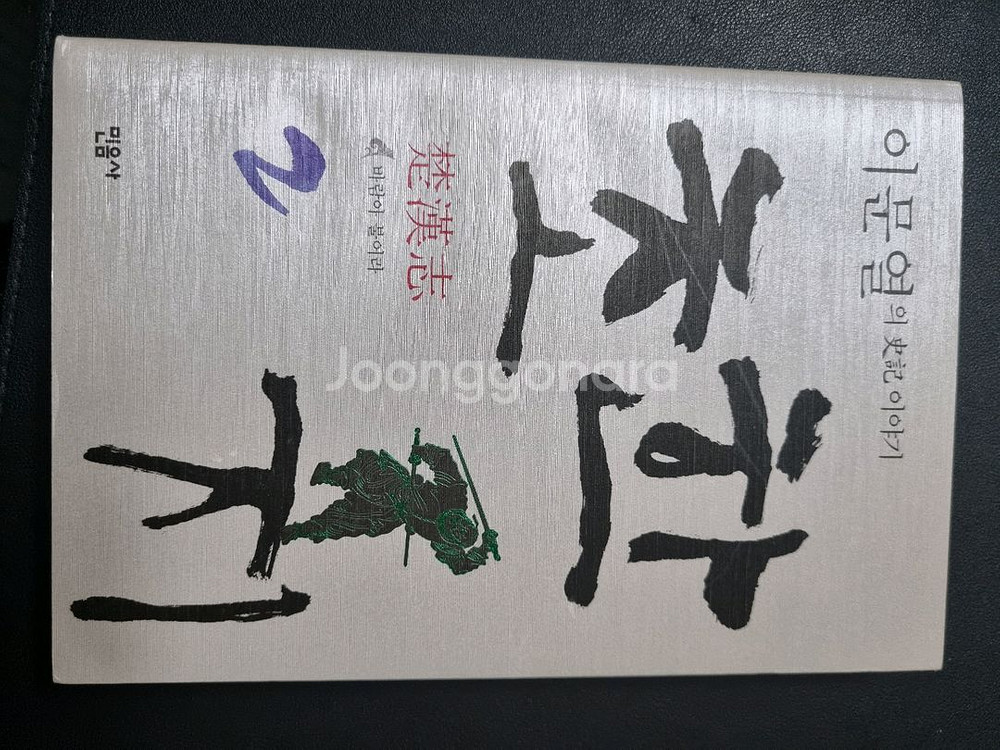 이문열의 史記 이야기
초한지
楚漢志
바람이 불어라
2
민음사
Joonggonara